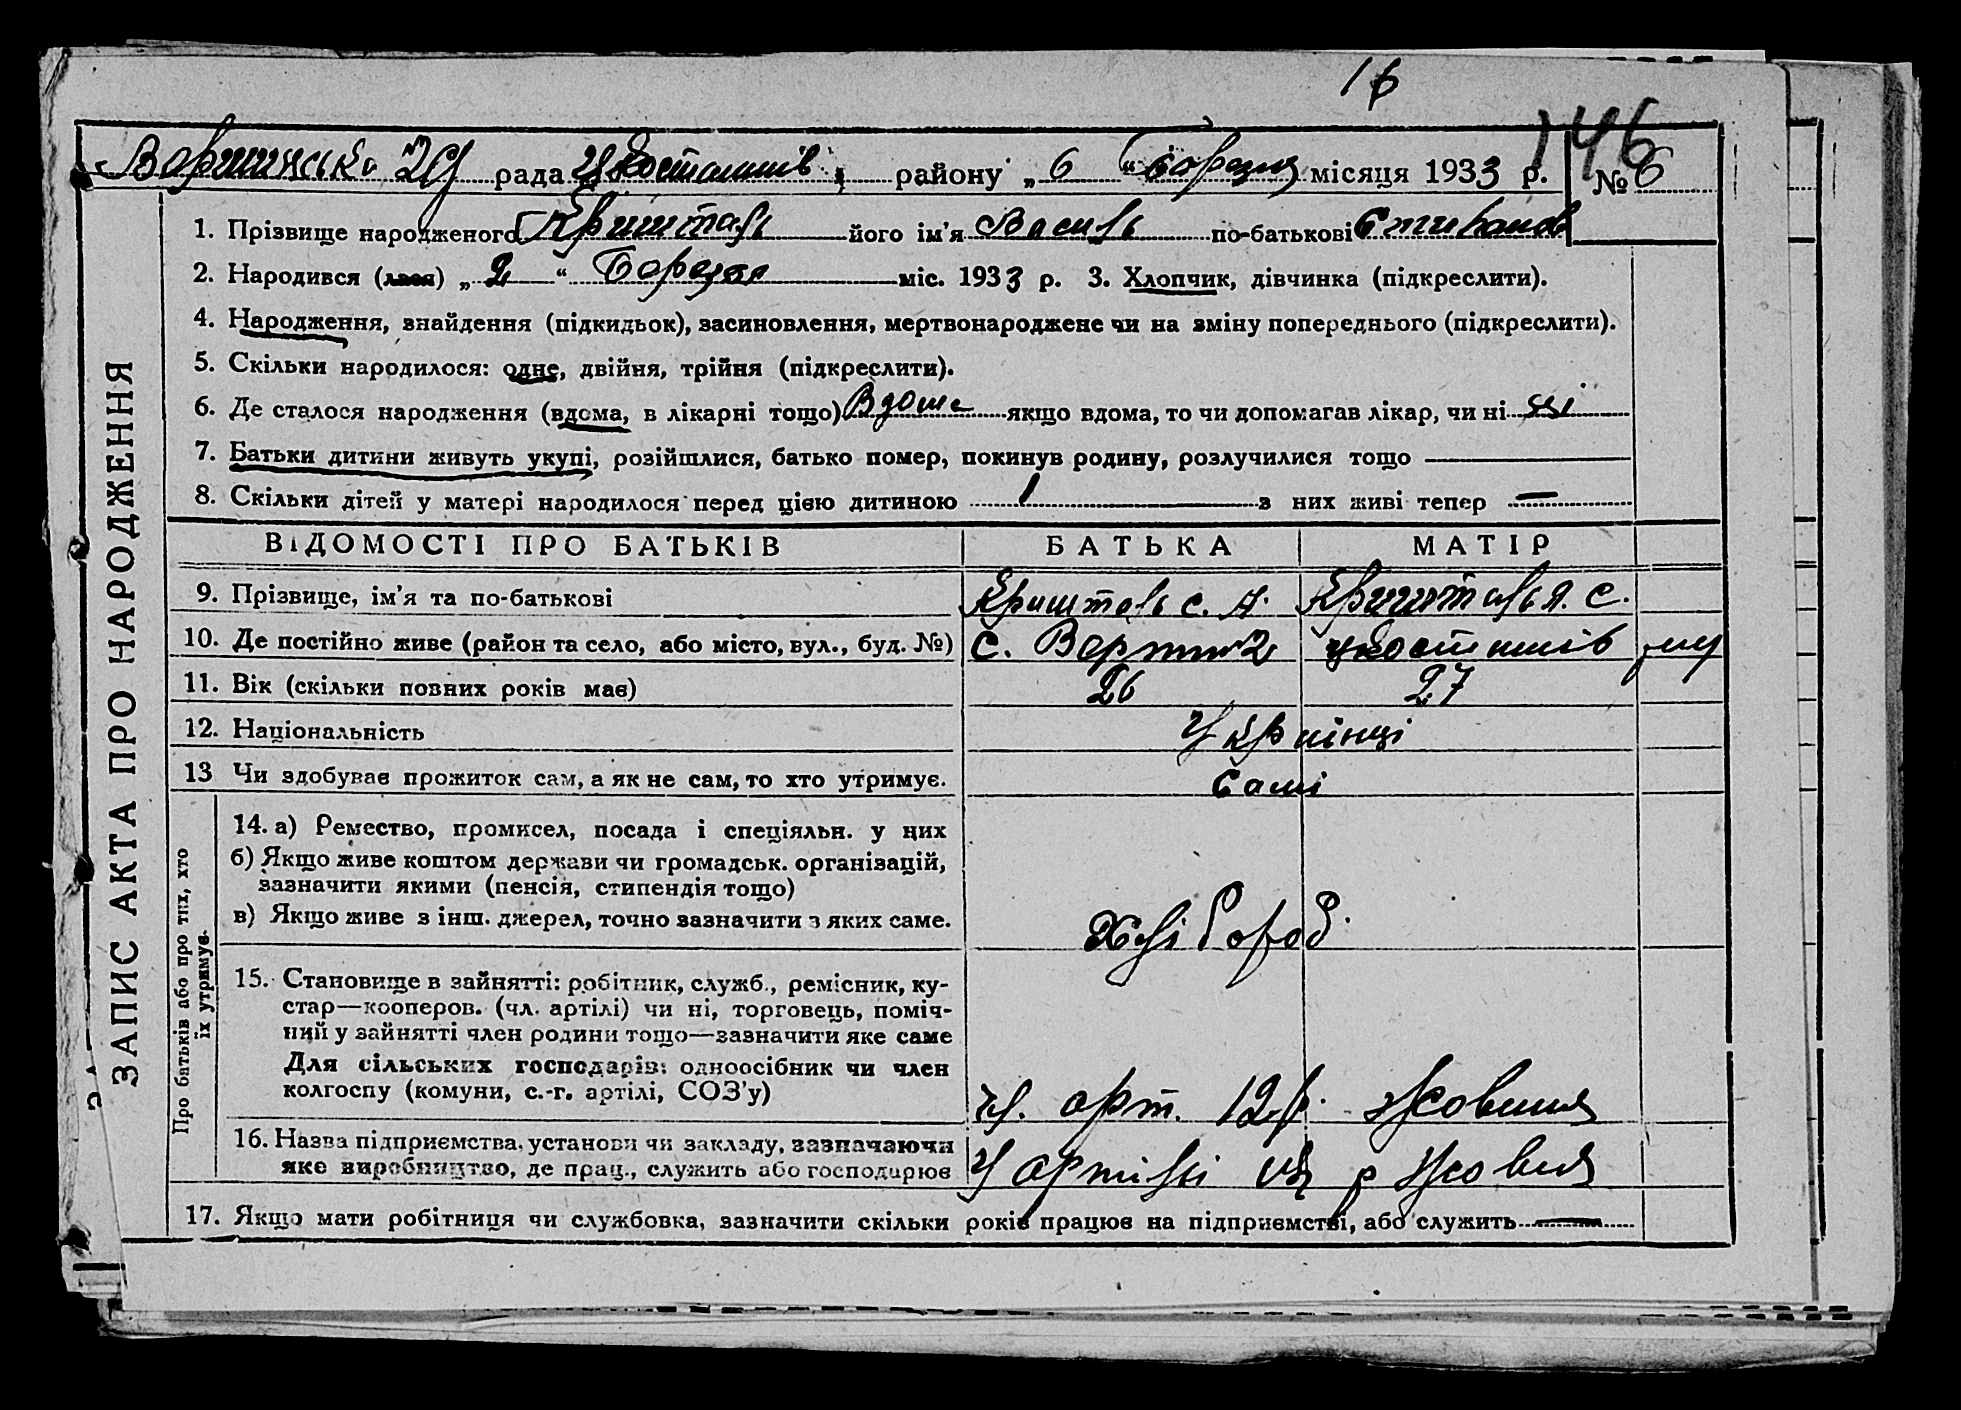 16
146
рада района „ 6 “ березня місяця 1933 р. № 6
1. Прізвище народженого Кришталь його ім'я Василь по-батькові
2. Народився (лася) „ 2 “ Березня міс. 1933 р. 3. Хлопчик, дівчинка (підкреслити).
4. Народження, знайдення (підкидьок), засиновлення, мертвонароджене чи на зміну попереднього (підкреслити).
5. Скільки народилося: одне, двійня, трійня (підкреслити).
6. Де сталося народження (вдома, в лікарні тощо) Вдома якщо вдома, то чи допомагав лікар, чи ні ні
7. Батьки дитини живуть укупі, розійшлися, батько помер, покинув родину, розлучилися тощо
8. Скільки дітей у матері народилося перед цією дитиною 1 з них живі тепер —
ЗАПИС АКТА ПРО НАРОДЖЕННЯ
ВІДОМОСТІ ПРО БАТЬКІВ БАТЬКА МАТІР
9. Прізвище, ім'я та по-батькові Кришталь С. А. Кришталь Я. С.
10. Де постійно живе (район та село, або місто, вул., буд. №) с.
11. Вік (скільки повних років має) 26 27
12. Національність Українці
13 Чи здобуває прожиток сам, а як не сам, то хто утримує. Самі
Про батьків або про тих, хто
їх утримує.
14. а) Ремество, промисел, посада і спеціяльн. у них
б) Якщо живе коштом держави чи громадськ. організацій,
зазначити якими (пенсія, стипендія тощо)
в) Якщо живе з інш. джерел, точно зазначити з яких саме.
Хлібороб.
15. Становище в зайнятті: робітник, служб., ремісник, ку-
стар—кооперов. (чл. артілі) чи ні, торговець, поміч-
ний у зайнятті член родини тощо—зазначити яке саме
Для сільських господарів: одноосібник чи член
колгоспу (комуни, с.-г. артілі, СОЗ'у)
чл. арт. 12 р. Жовтня
16. Назва підприємства, установи чи закладу, зазначаючи
яке виробництво, де прац., служить або господарює
У артілі р Жовтня
17. Якщо мати робітниця чи службовка, зазначити скільки років працює на підприємстві, або служить —